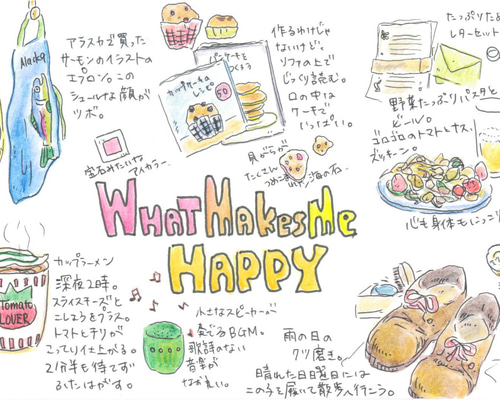 アラスカで買った
サーモンのイラストの
エプロン。この
シュールな顔が
ツボ。
Alaska
作るわけじゃ
ないけど、
ソファの上で
じっくり読む。
口の中は
ケーキで
いっぱい。
パンケーキを
つくろう
カップケーキの
レシピ
50
たっぷりため
レターセット
宝石みたいな
アイカラー。
貝がらが
たくさん
野菜たっぷりパスタと
ビール。
ゴロゴロのトマトとナス、
ズッキーニ。
心も身体もにっこり
WHAT MAKES ME
HAPPY
カップラーメン
深夜2時。
スライスチーズと
こしょうをプラス。
トマトとチリが
こってり仕上がる。
2分半も待てず
ふたはがす。
Tomato
LOVER
小さなスピーカーが
奏でるBGM。
歌詞のない
音楽が
なお良し。
雨の日の
クツ磨き。
晴れた日曜日には
この子を履いて散歩へ行こう。